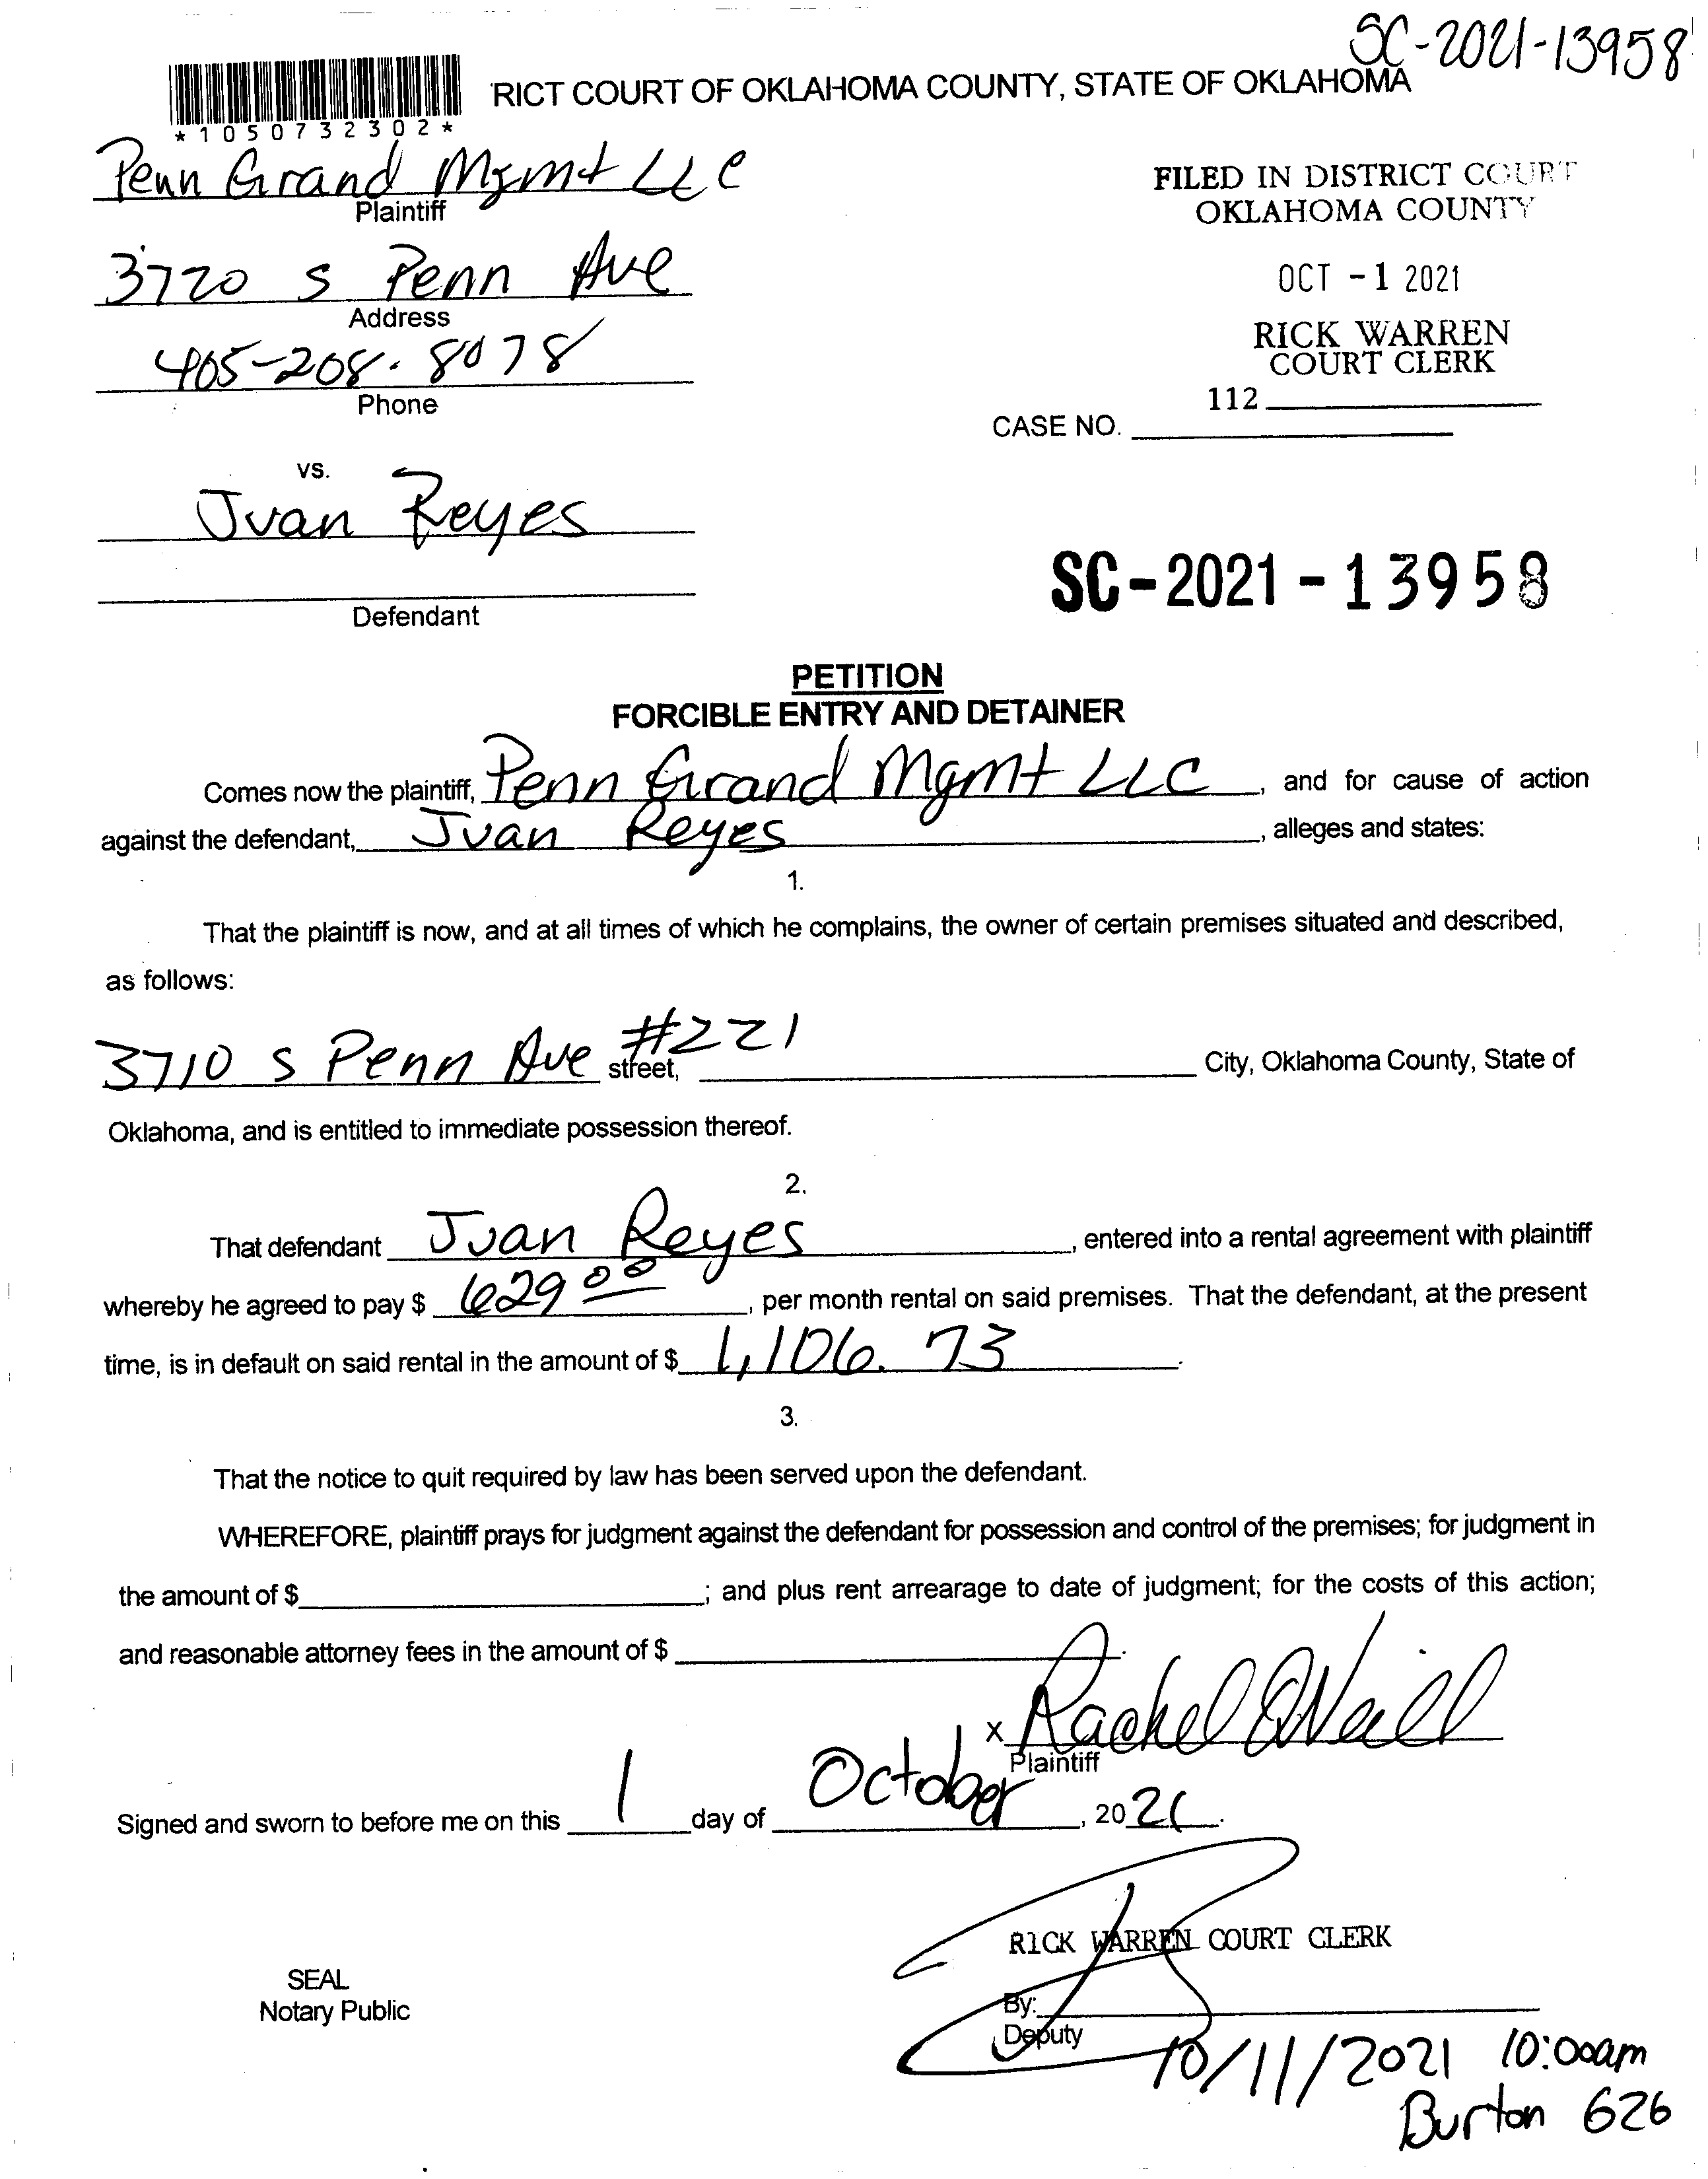 SC-2021-13958
RICT COURT OF OKLAHOMA COUNTY, STATE OF OKLAHOMA
*1050732302*
Penn Grand Mgmt LLC
Plaintiff
FILED IN DISTRICT COURT
OKLAHOMA COUNTY
3720 S Penn Ave
Address
OCT -1 2021
405-208-8078
Phone
RICK WARREN
COURT CLERK
112
CASE NO.
vs.
Juan Reyes
Defendant
SC-2021-13958
PETITION
FORCIBLE ENTRY AND DETAINER
Comes now the plaintiff, Penn Grand Mgmt LLC, and for cause of action
against the defendant, Juan Reyes, alleges and states:
1.
That the plaintiff is now, and at all times of which he complains, the owner of certain premises situated and described,
as follows:
3710 S Penn Ave #221 street, City, Oklahoma County, State of
Oklahoma, and is entitled to immediate possession thereof.
2.
That defendant Juan Reyes, entered into a rental agreement with plaintiff
whereby he agreed to pay $ 629 00, per month rental on said premises. That the defendant, at the present
time, is in default on said rental in the amount of $ 1,106.73.
3.
That the notice to quit required by law has been served upon the defendant.
WHEREFORE, plaintiff prays for judgment against the defendant for possession and control of the premises; for judgment in
the amount of $; and plus rent arrearage to date of judgment; for the costs of this action;
and reasonable attorney fees in the amount of $.
X Rachel ONeill
Plaintiff
Signed and sworn to before me on this 1 day of October, 2021.
RICK WARREN COURT CLERK
SEAL
Notary Public
By:
Deputy
10/11/2021 10:00am
Burton 626